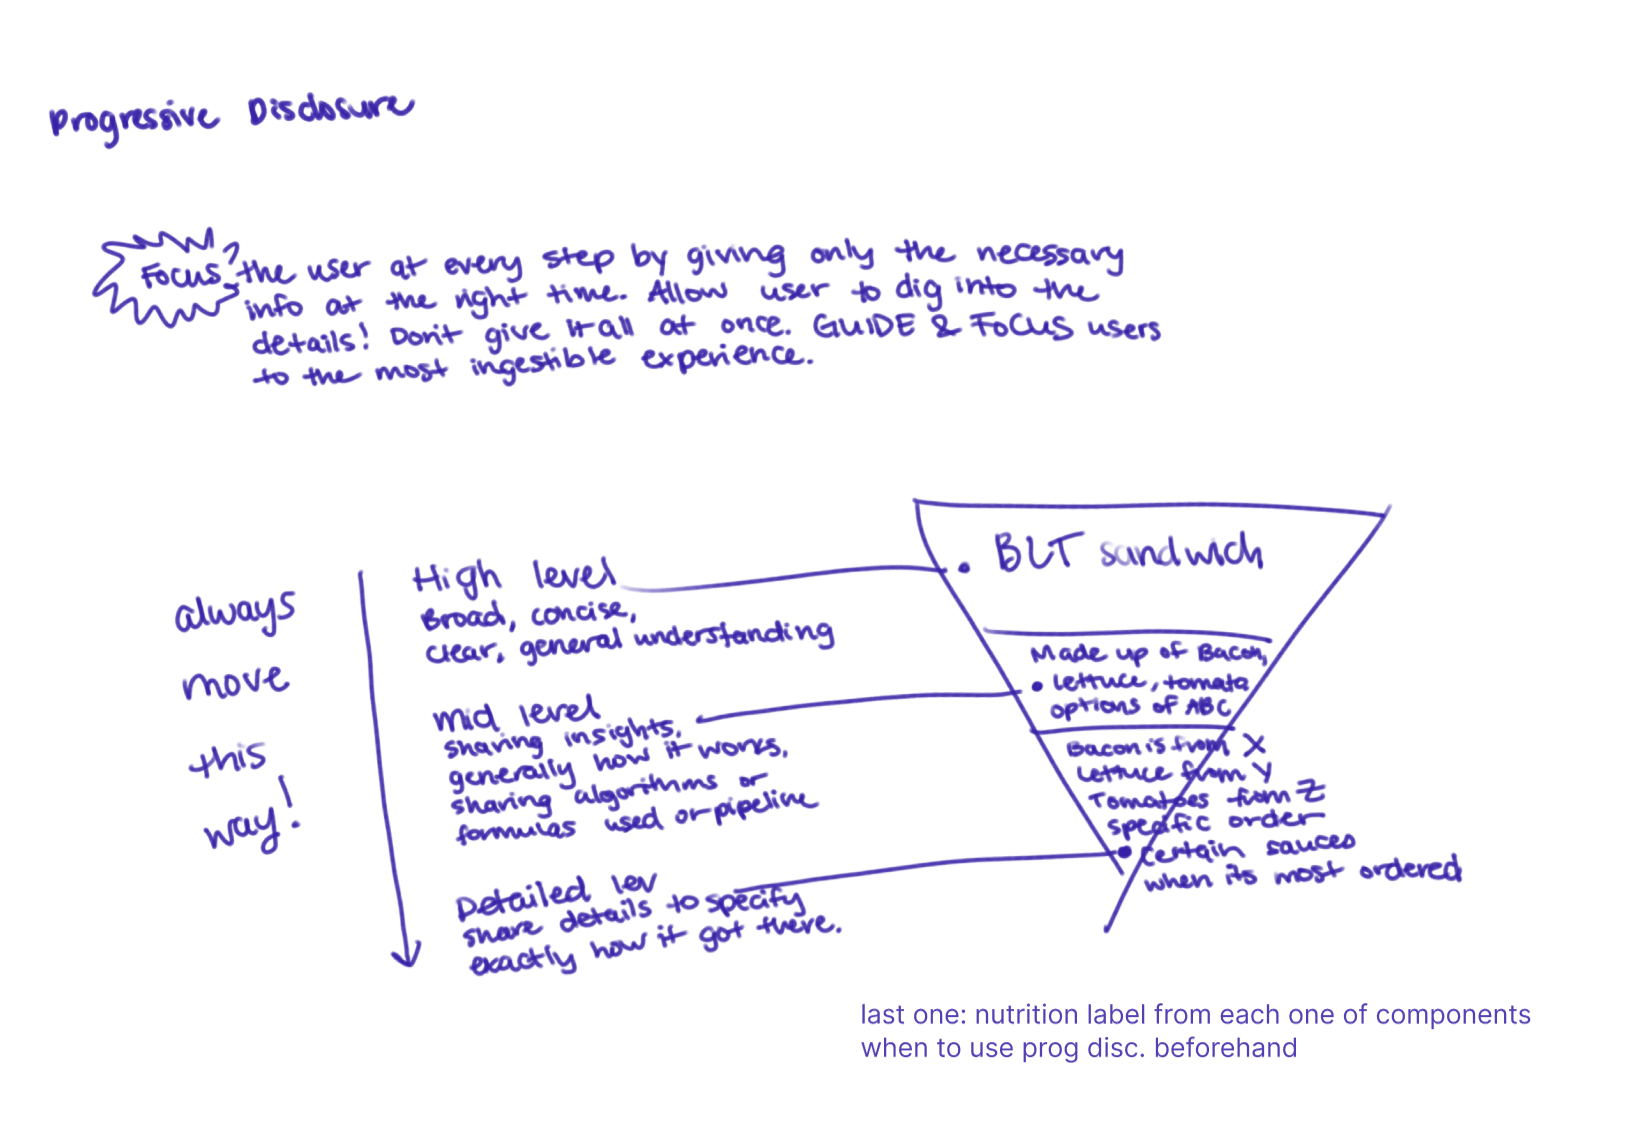 Progressive Disclosure
Focus the user at every step by giving only the necessary
info at the right time. Allow user to dig into the
details! Don't give it all at once. GUIDE & FOCUS users
to the most ingestible experience.
always
move
this
way!
High level
Broad, concise,
clear, general understanding
mid level
sharing insights,
generally how it works,
sharing algorithms or
formulas used or pipeline
Detailed lev
share details to specify
exactly how it got there.
BLT sandwich
Made up of Bacon,
lettuce, tomato
options of ABC
Bacon is from X
Lettuce from Y
Tomatoes from Z
specific order
certain sauces
when its most ordered
last one: nutrition label from each one of components
when to use prog disc. beforehand